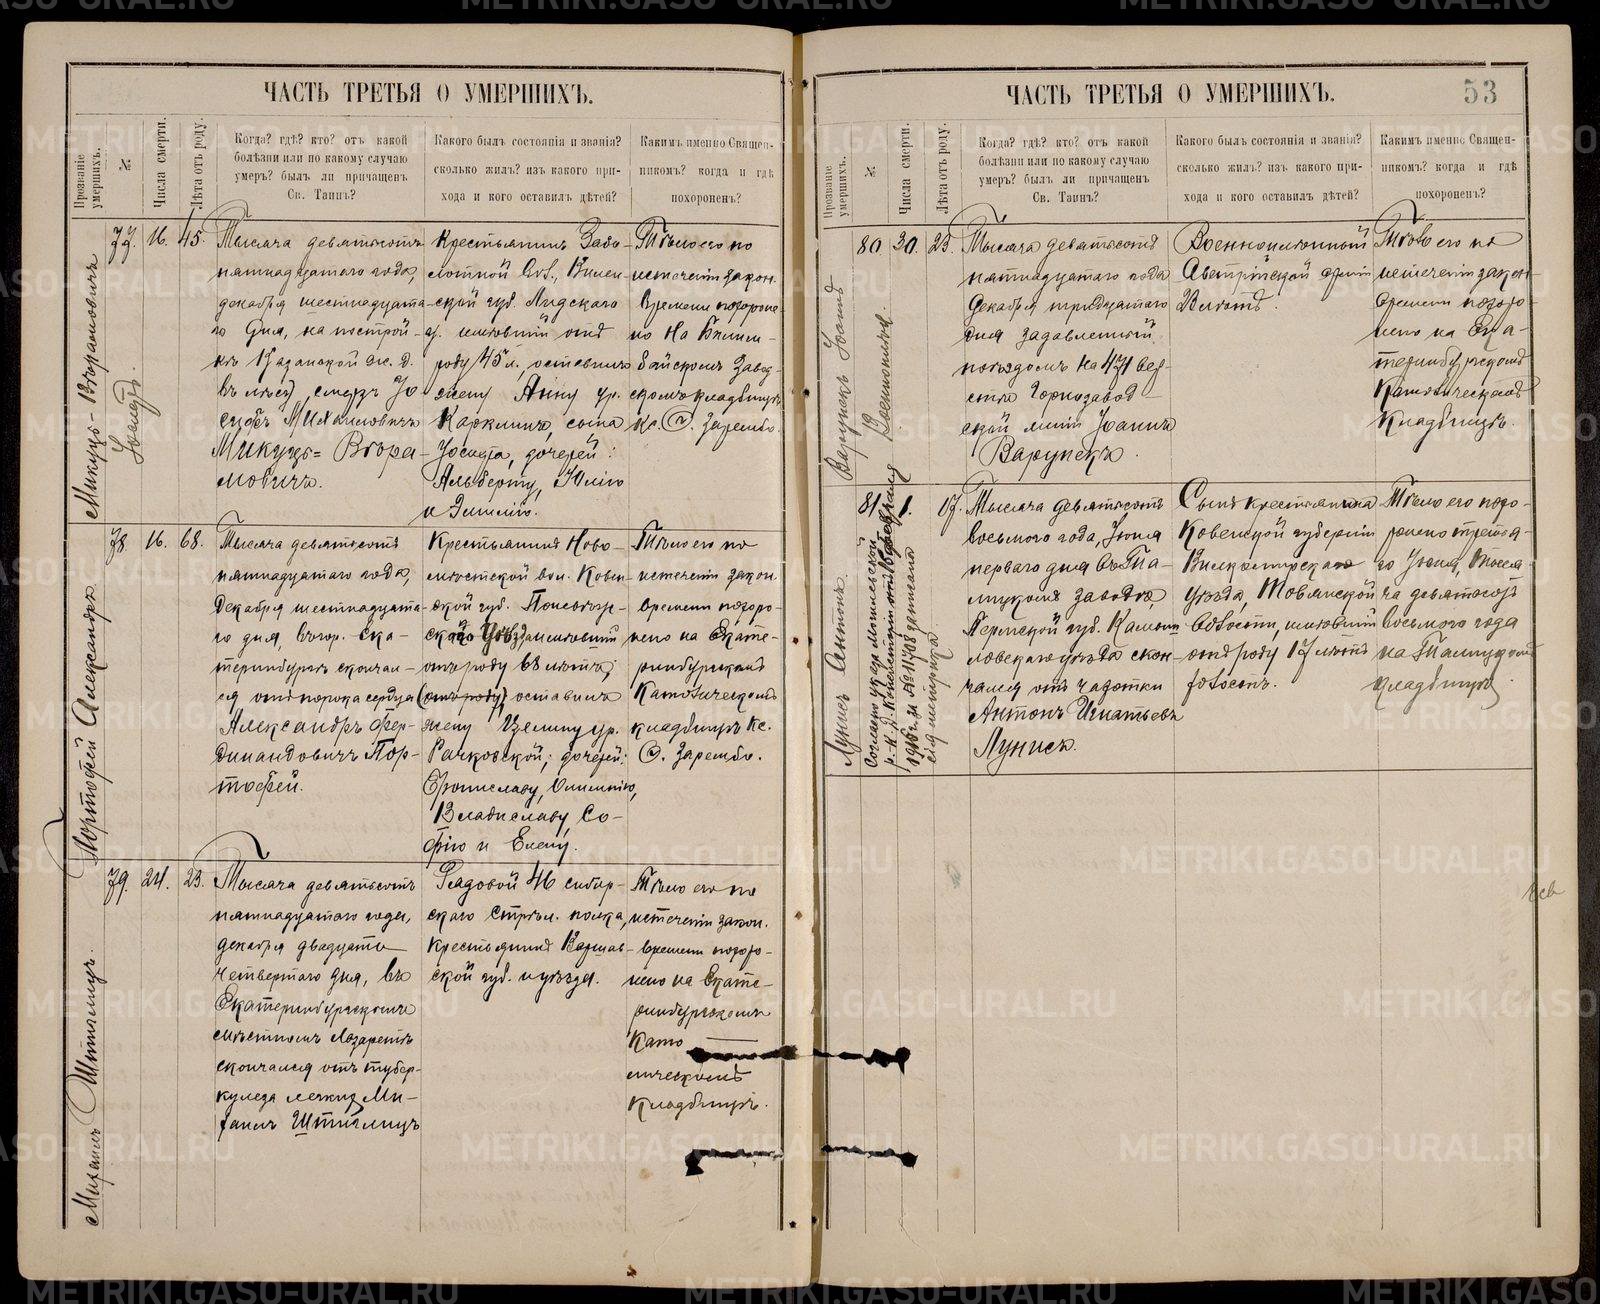 ЧАСТЬ ТРЕТЬЯ О УМЕРШИХЪ.
Прозваніе умершихъ.
№
Числа смерти.
Лѣта отъ роду.
Когда? гдѣ? кто? отъ какой
болѣзни или по какому случаю
умеръ? былъ ли причащенъ
Св. Таинъ?
Какого былъ состоянія и званія?
сколько жилъ? изъ какого при-
хода и кого оставилъ дѣтей?
Какимъ именно Священ-
никомъ? когда и гдѣ
похороненъ?
77. 16. 45.
Тысяча девятьсотъ
пятнадцатаго года,
декабря шестнадцата-
го дня, на построй-
кѣ Казанской ж. д.
въ лѣсу,
Михаиловичъ
Крестьянинъ Забо-
лотной вол., Вилен-
ской губ. Лидскаго
у. имѣвшій отъ
роду 45 л., оставилъ
жену Анну ур.
сына
Іосифа, дочерей:
Альберту, Юлію
и Эмилію.
Тѣло его по
истеченіи закон.
времени похороне-
но на Билим-
баевскомъ Завод-
скомъ кладбищѣ
Кс. Зарембо.
78. 16. 68.
Портофей Александръ
Тысяча девятьсотъ
пятнадцатаго года,
Декабря шестнадцата-
го дня, въ гор. Ека-
теринбургѣ скончал-
ся отъ порока сердца
Александръ Фер-
динандовичъ Пор-
тофей.
Крестьянинъ Ново-
мѣстской вол. Ковен-
ской губ.
имѣвшій
отъ роду 68 лѣтъ,
(отъ роду) оставилъ
жену ур.
Рачковской; дочерей:
Брониславу, Олимпію,
Владиславу, Со-
фію и Елену.
Тѣло его по
истеченіи закон.
времени похоро-
нено на Екате-
ринбургскомъ
Католическомъ
кладбищѣ Кс.
Зарембо.
79. 24. 23.
Михаилъ Штиглицъ
Тысяча девятьсотъ
пятнадцатаго года,
декабря двадцать
четвертаго дня, въ
Екатеринбургскомъ
мѣстномъ Лазаретѣ
скончался отъ тубер-
кулеза легкихъ Ми-
хаилъ Штиглицъ
Рядовой 46 сибир-
скаго Стрѣл. полка,
Крестьянинъ Варшав-
ской губ. и уѣзда.
Тѣло его по
истеченіи закон.
времени похоро-
нено на Екате-
ринбургскомъ
Като
лическомъ
Кладбищѣ.
ЧАСТЬ ТРЕТЬЯ О УМЕРШИХЪ.
53
Прозваніе умершихъ.
№
Числа смерти.
Лѣта отъ роду.
Когда? гдѣ? кто? отъ какой
болѣзни или по какому случаю
умеръ? былъ ли причащенъ
Св. Таинъ?
Какого былъ состоянія и званія?
сколько жилъ? изъ какого при-
хода и кого оставилъ дѣтей?
Какимъ именно Священ-
никомъ? когда и гдѣ
похороненъ?
80 30. 23.
Тысяча девятьсотъ
пятнадцатаго года
Декабря тридцатаго
дня задавленный
поѣздомъ на 471 вер-
стѣ Горнозавод-
ской линіи Іоаннъ
Варунекъ.
Военноплѣнный
Австрійской арміи
Тѣло его по
истеченіи закон.
времени похоро-
нено на Ека-
теринбургскомъ
Католическомъ
Кладбищѣ.
81 1. 17.
Лунисъ Антонъ.
Тысяча девятьсотъ
восьмого года, Іюня
перваго дня въ Та-
лицкомъ заводѣ,
Пермской губ. Камыш-
ловскаго уѣзда скон-
чался отъ чахотки
Антонъ Игнатьевъ
Лунисъ.
Сынъ крестьянина
Ковенской губерніи
Вилкомірскаго
уѣзда, Товянской
волости, имѣвшій
отъ роду 17 лѣтъ
холостъ.
Тѣло его похо-
ронено третья-
го Іюня, Тыся-
ча девятьсотъ
восьмого года
на Талицкомъ
кладбищѣ
METRIKI.GASO-URAL.RU